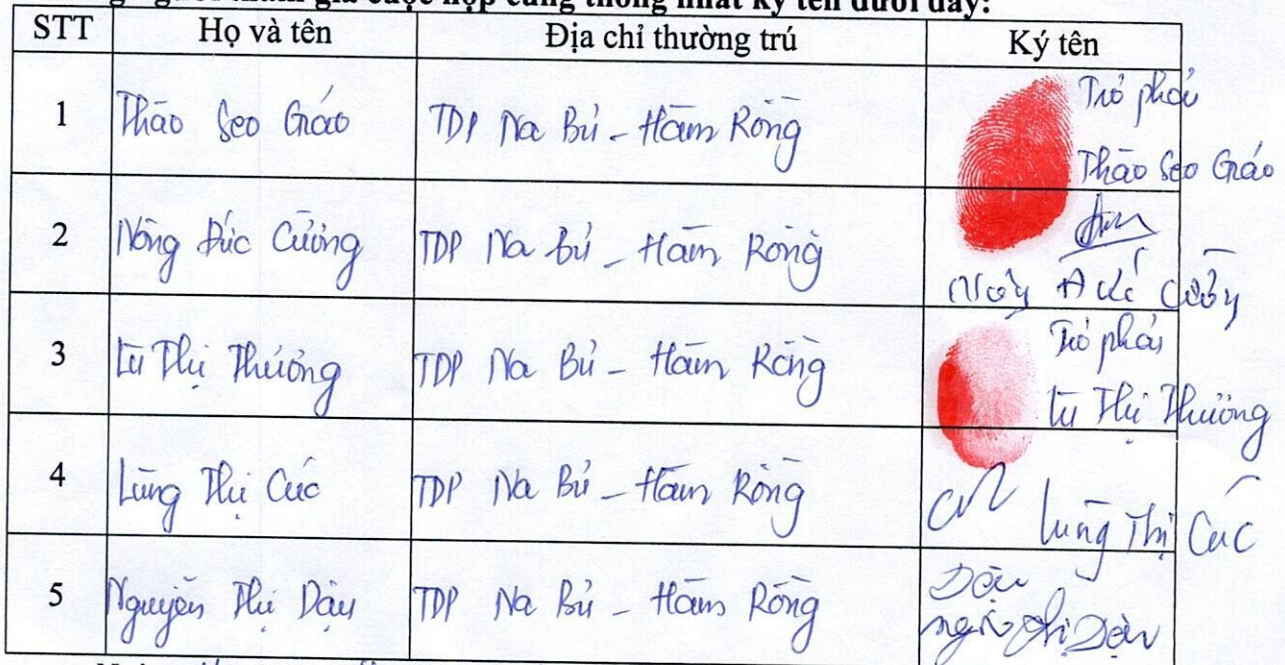 người tham gia cuộc họp cùng thống nhất ký tên dưới đây:
STT Họ và tên Địa chỉ thường trú Ký tên
1 Thào Seo Gráo TDP Na Bủ - Hàm Rồng Trỏ phải Thào Seo Gráo
2 Nông Đức Cường TDP Na Bủ - Hàm Rồng
3 Lù Thị Thưởng TDP Na Bủ - Hàm Rồng Trỏ phải Lù Thị Thưởng
4 Lùng Thị Cúc TDP Na Bủ - Hàm Rồng Lùng Thị Cúc
5 Nguyễn Thị Dậu TDP Na Bủ - Hàm Rồng Dậu